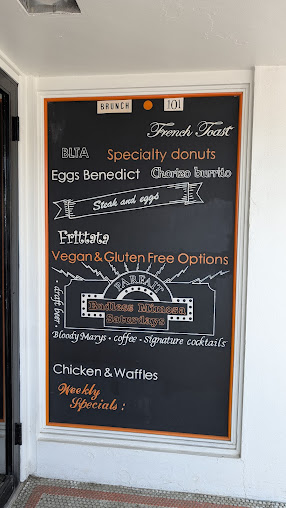 BRUNCH 101
French Toast
BLTA
Specialty donuts
Eggs Benedict
Chorizo burrito
Steak and eggs
Frittata
Vegan & Gluten Free Options
PARFAIT
Endless Mimosa
Saturdays
· draft beer ·
Bloody Marys · coffee · Signature cocktails
Chicken & Waffles
Weekly
Specials :